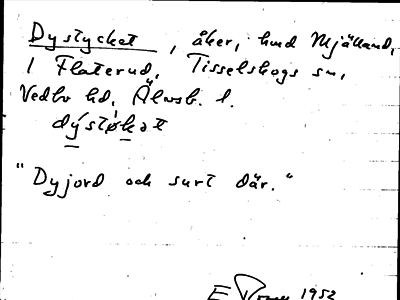 Dystycket, åker, hmd Mjölkudd,
1 Flaterud, Tisselskogs sn,
Vedbo hd, Älvsb. l.
dýstø̀kət
"Dyjord och surt där."
1952